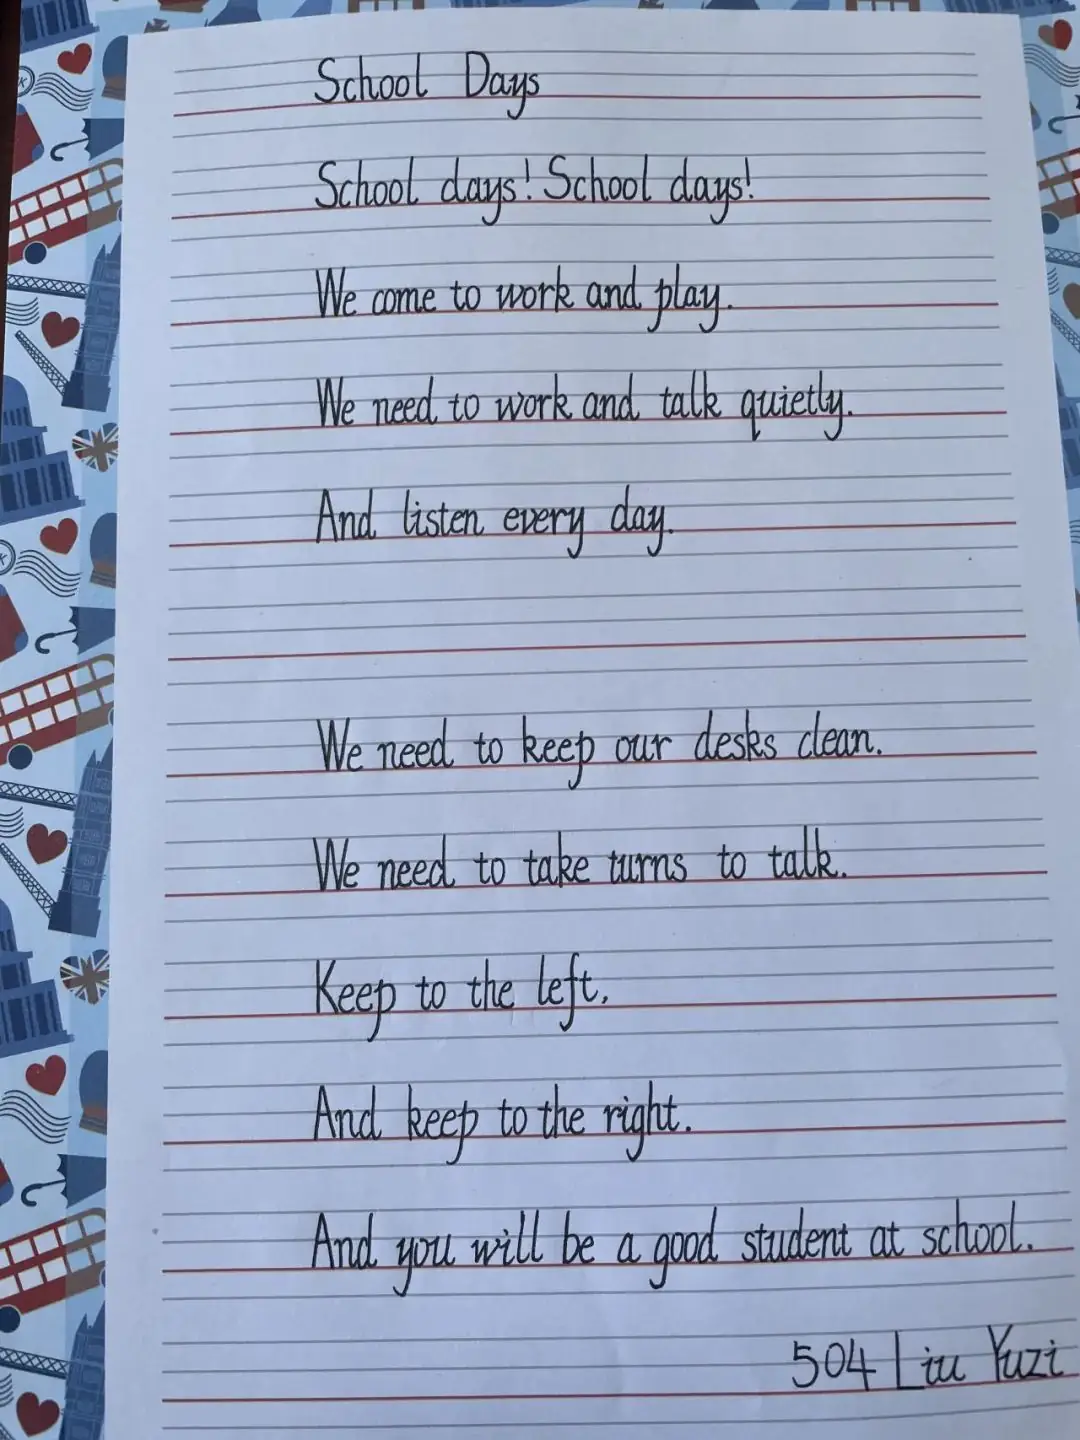 School Days
School days! School days!
We come to work and play.
We need to work and talk quietly.
And listen every day.
We need to keep our desks clean.
We need to take turns to talk.
Keep to the left.
And keep to the right.
And you will be a good student at school.
504 Liu Yuzi